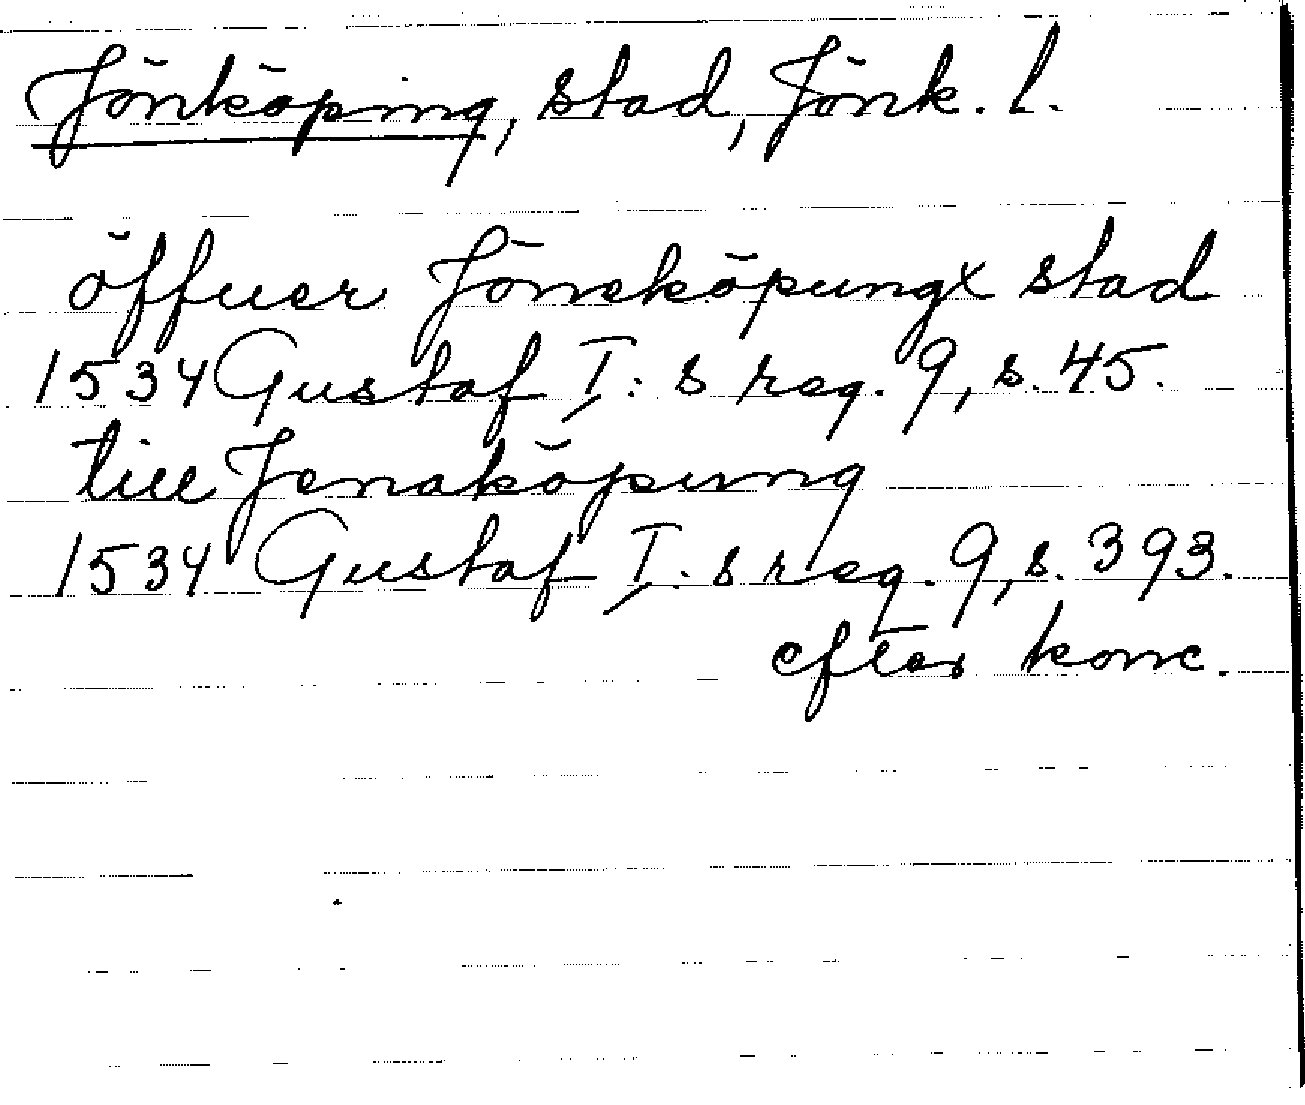 Jönköping, stad, Jönk. l.
öffuer Jöneköpungx stad
1534 Gustaf I:s reg. 9, s. 45.
till Jenaköpung
1534 Gustaf I:s reg. 9, s. 393.
efter konc.